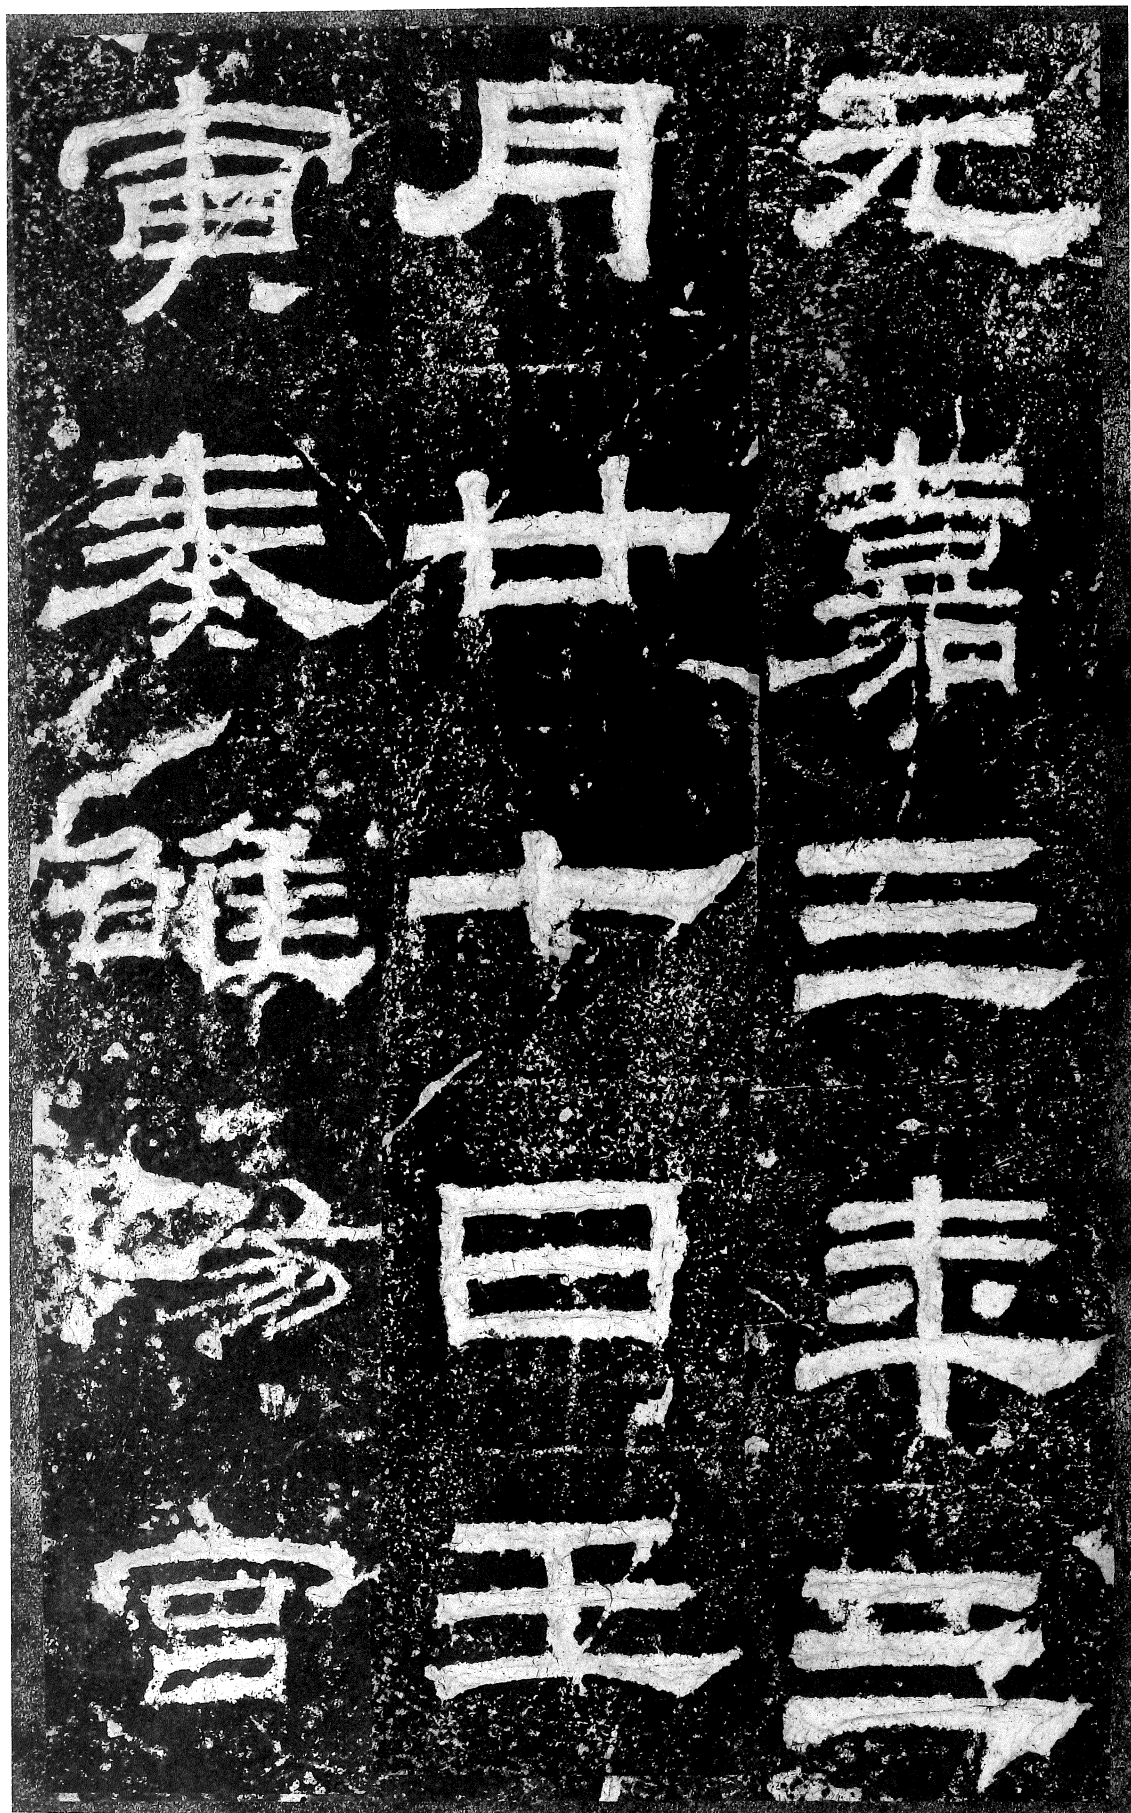 元嘉三年三
月廿七日壬
寅奏雒陽宮